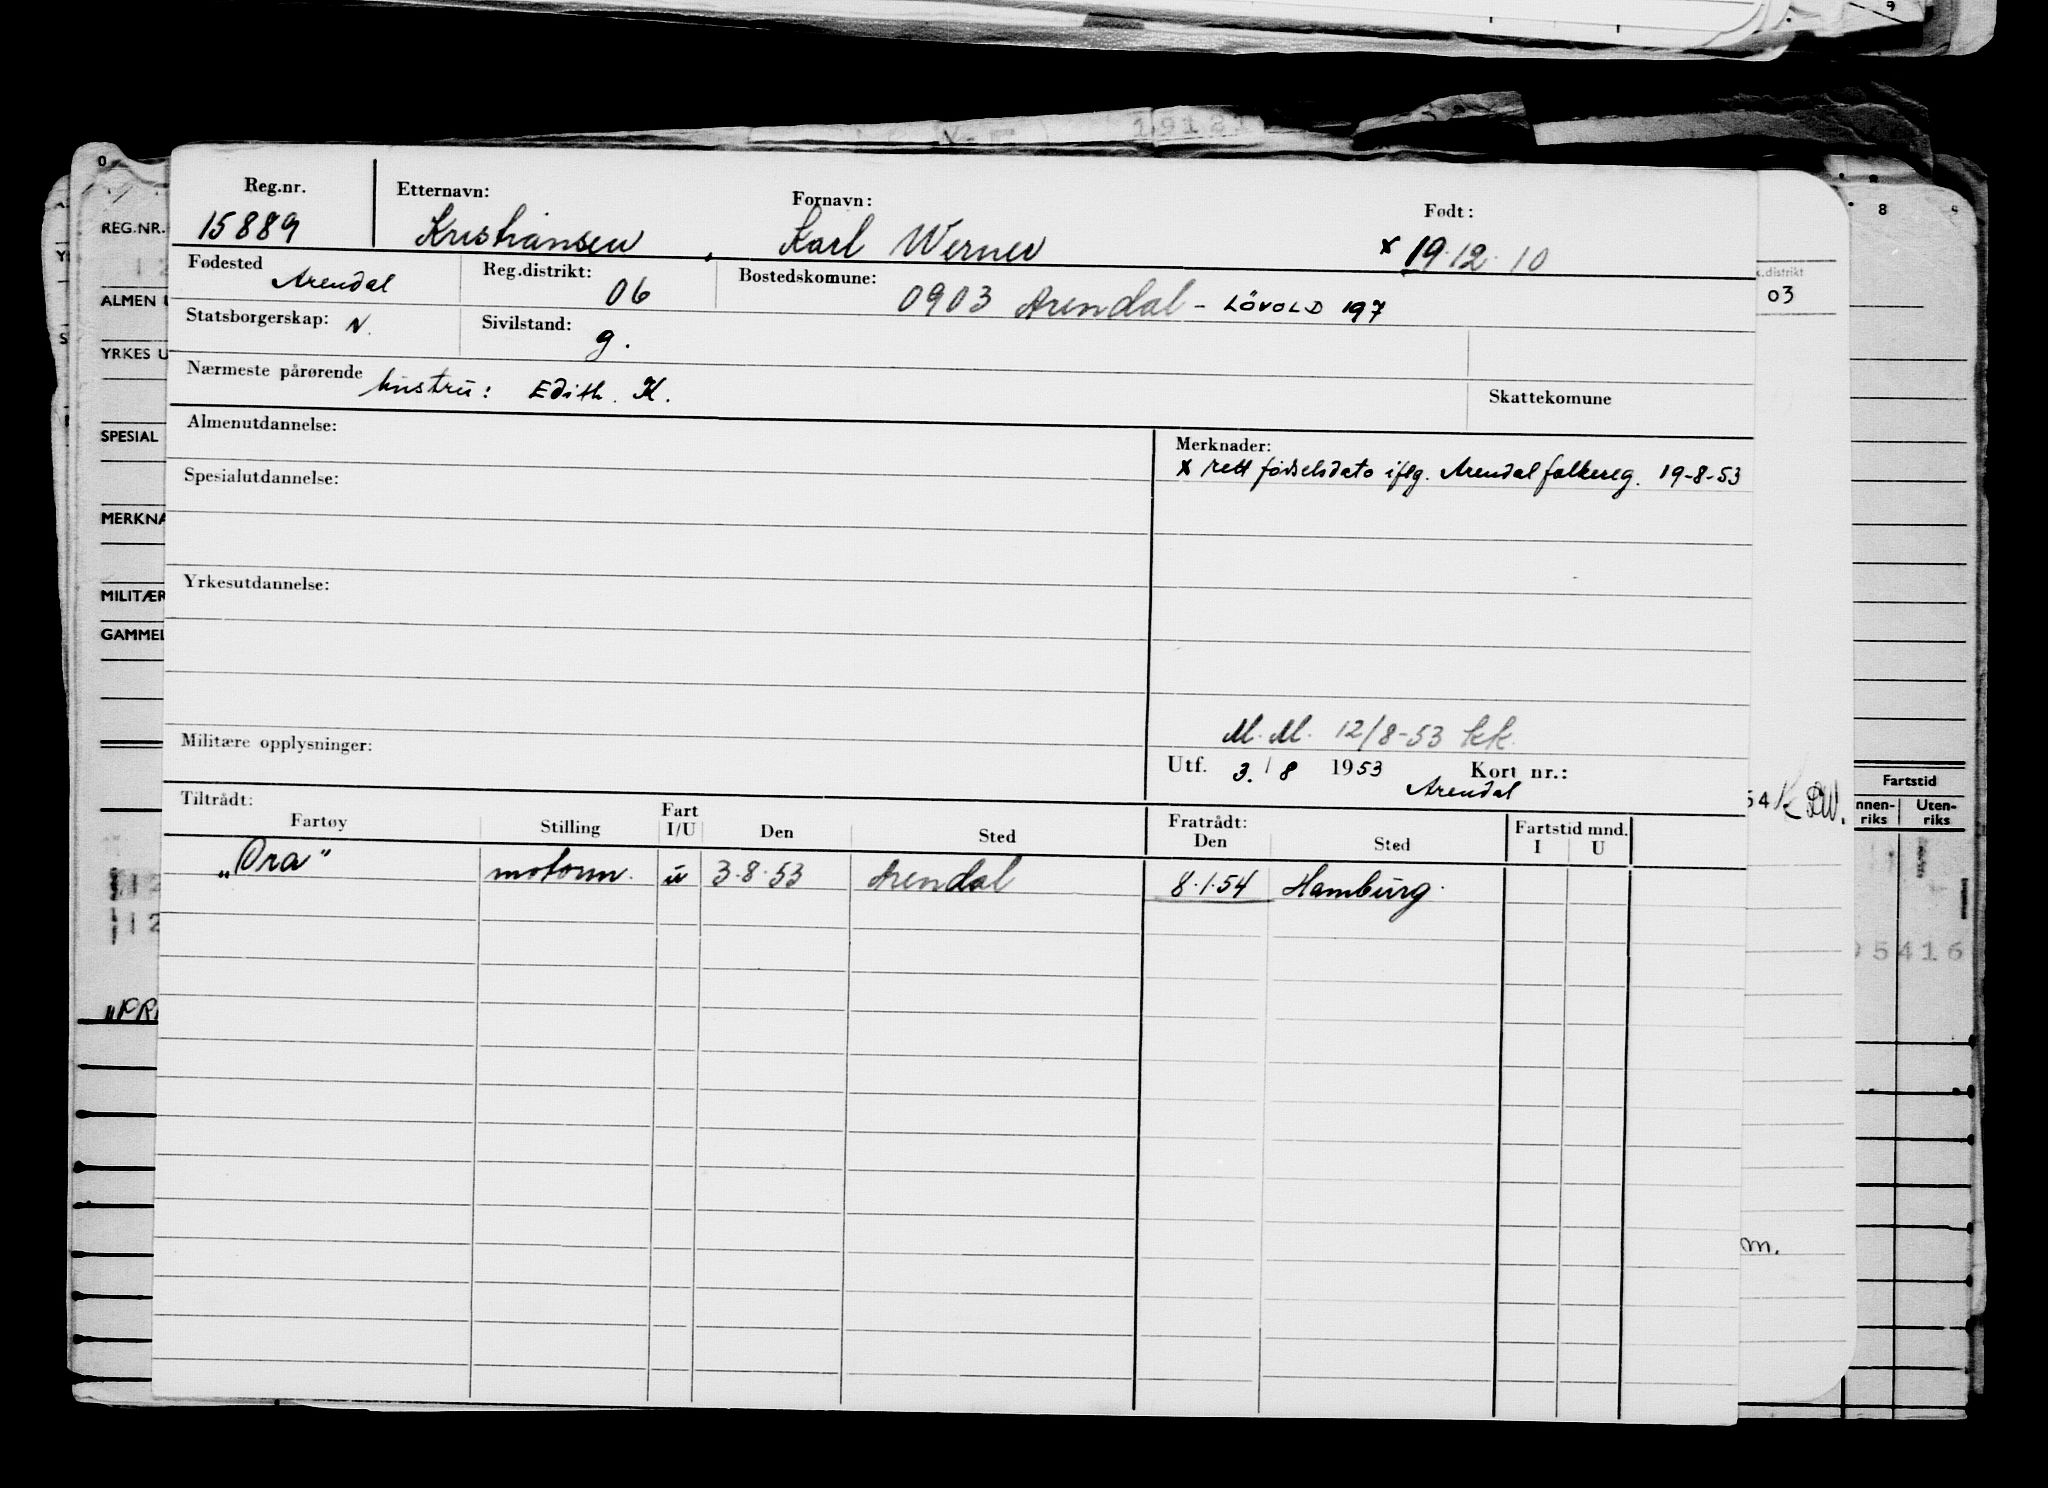 9
19181
0
8
9
Reg.nr. Etternavn: Fornavn: Født:
15889 Kristiansen, Karl Werner x 19.12.10
REG.NR.
Fødested Arendal Reg.distrikt: 06 Bostedskomune: 0903 Arendal - LÖVOLD 197
.distrikt
03
ALMEN U
Statsborgerskap: N. Sivilstand: g.
YRKES U
Nærmeste pårørende hustru: Edith. K. Skattekomune
Almenutdannelse: Merknader:
SPESIAL
x rett fødselsdato iflg. Arendal folkereg. 19-8-53
Spesialutdannelse:
MERKNA
Yrkesutdannelse:
MILITÆR
GAMMEL
M.M. 12/8-53 kk.
Militære opplysninger: Utf. 3. / 8 1953 Kort nr.:
Arendal
54 K DW.
Fartstid
nnen-riks Uten-riks
Tiltrådt: Fratrådt: Fartstid mnd.
Fartøy Stilling Fart I/U Den Sted Den Sted I U
"Ora" motorm. u 3.8.53 Arendal 8.1.54 Hamburg.
12
12
95416
"PRI
m.